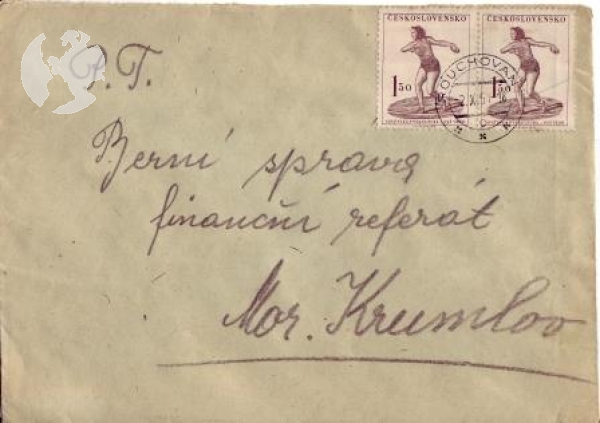 ČESKOSLOVENSKO ČESKOSLOVENSKO
1 50 1 50
P. T.
Berní správa
finanční referát
Mor. Krumlov